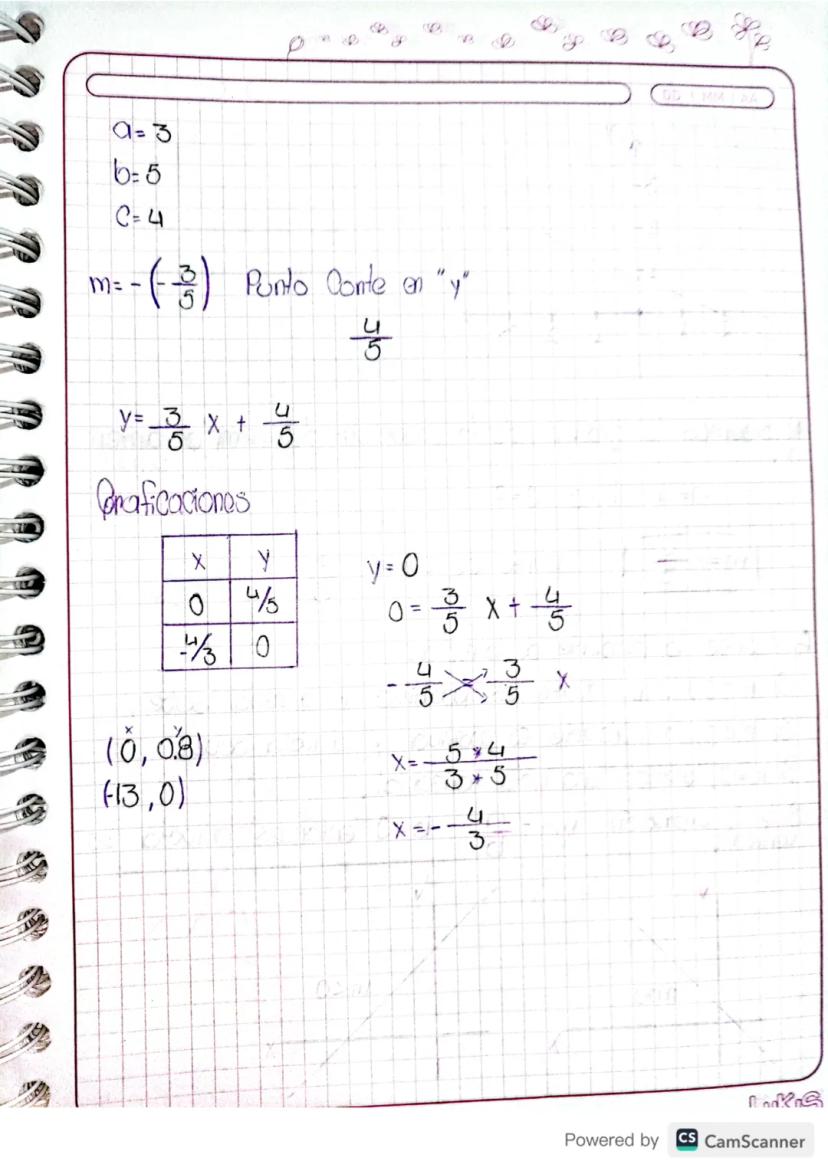 AA MM DD
a= 3
b= 5
c= 4
m= -(-3/5) Punto Conte en "y"
4/5
y= 3/5 x + 4/5
Graficaciones
x y
0 4/5
-4/3 0
y= 0
0 = 3/5 x + 4/5
-4/5 = 3/5 x
x= 5*4/3*5
x= -4/3
x y
(0, 0.8)
(-13, 0)
Powered by CS CamScanner